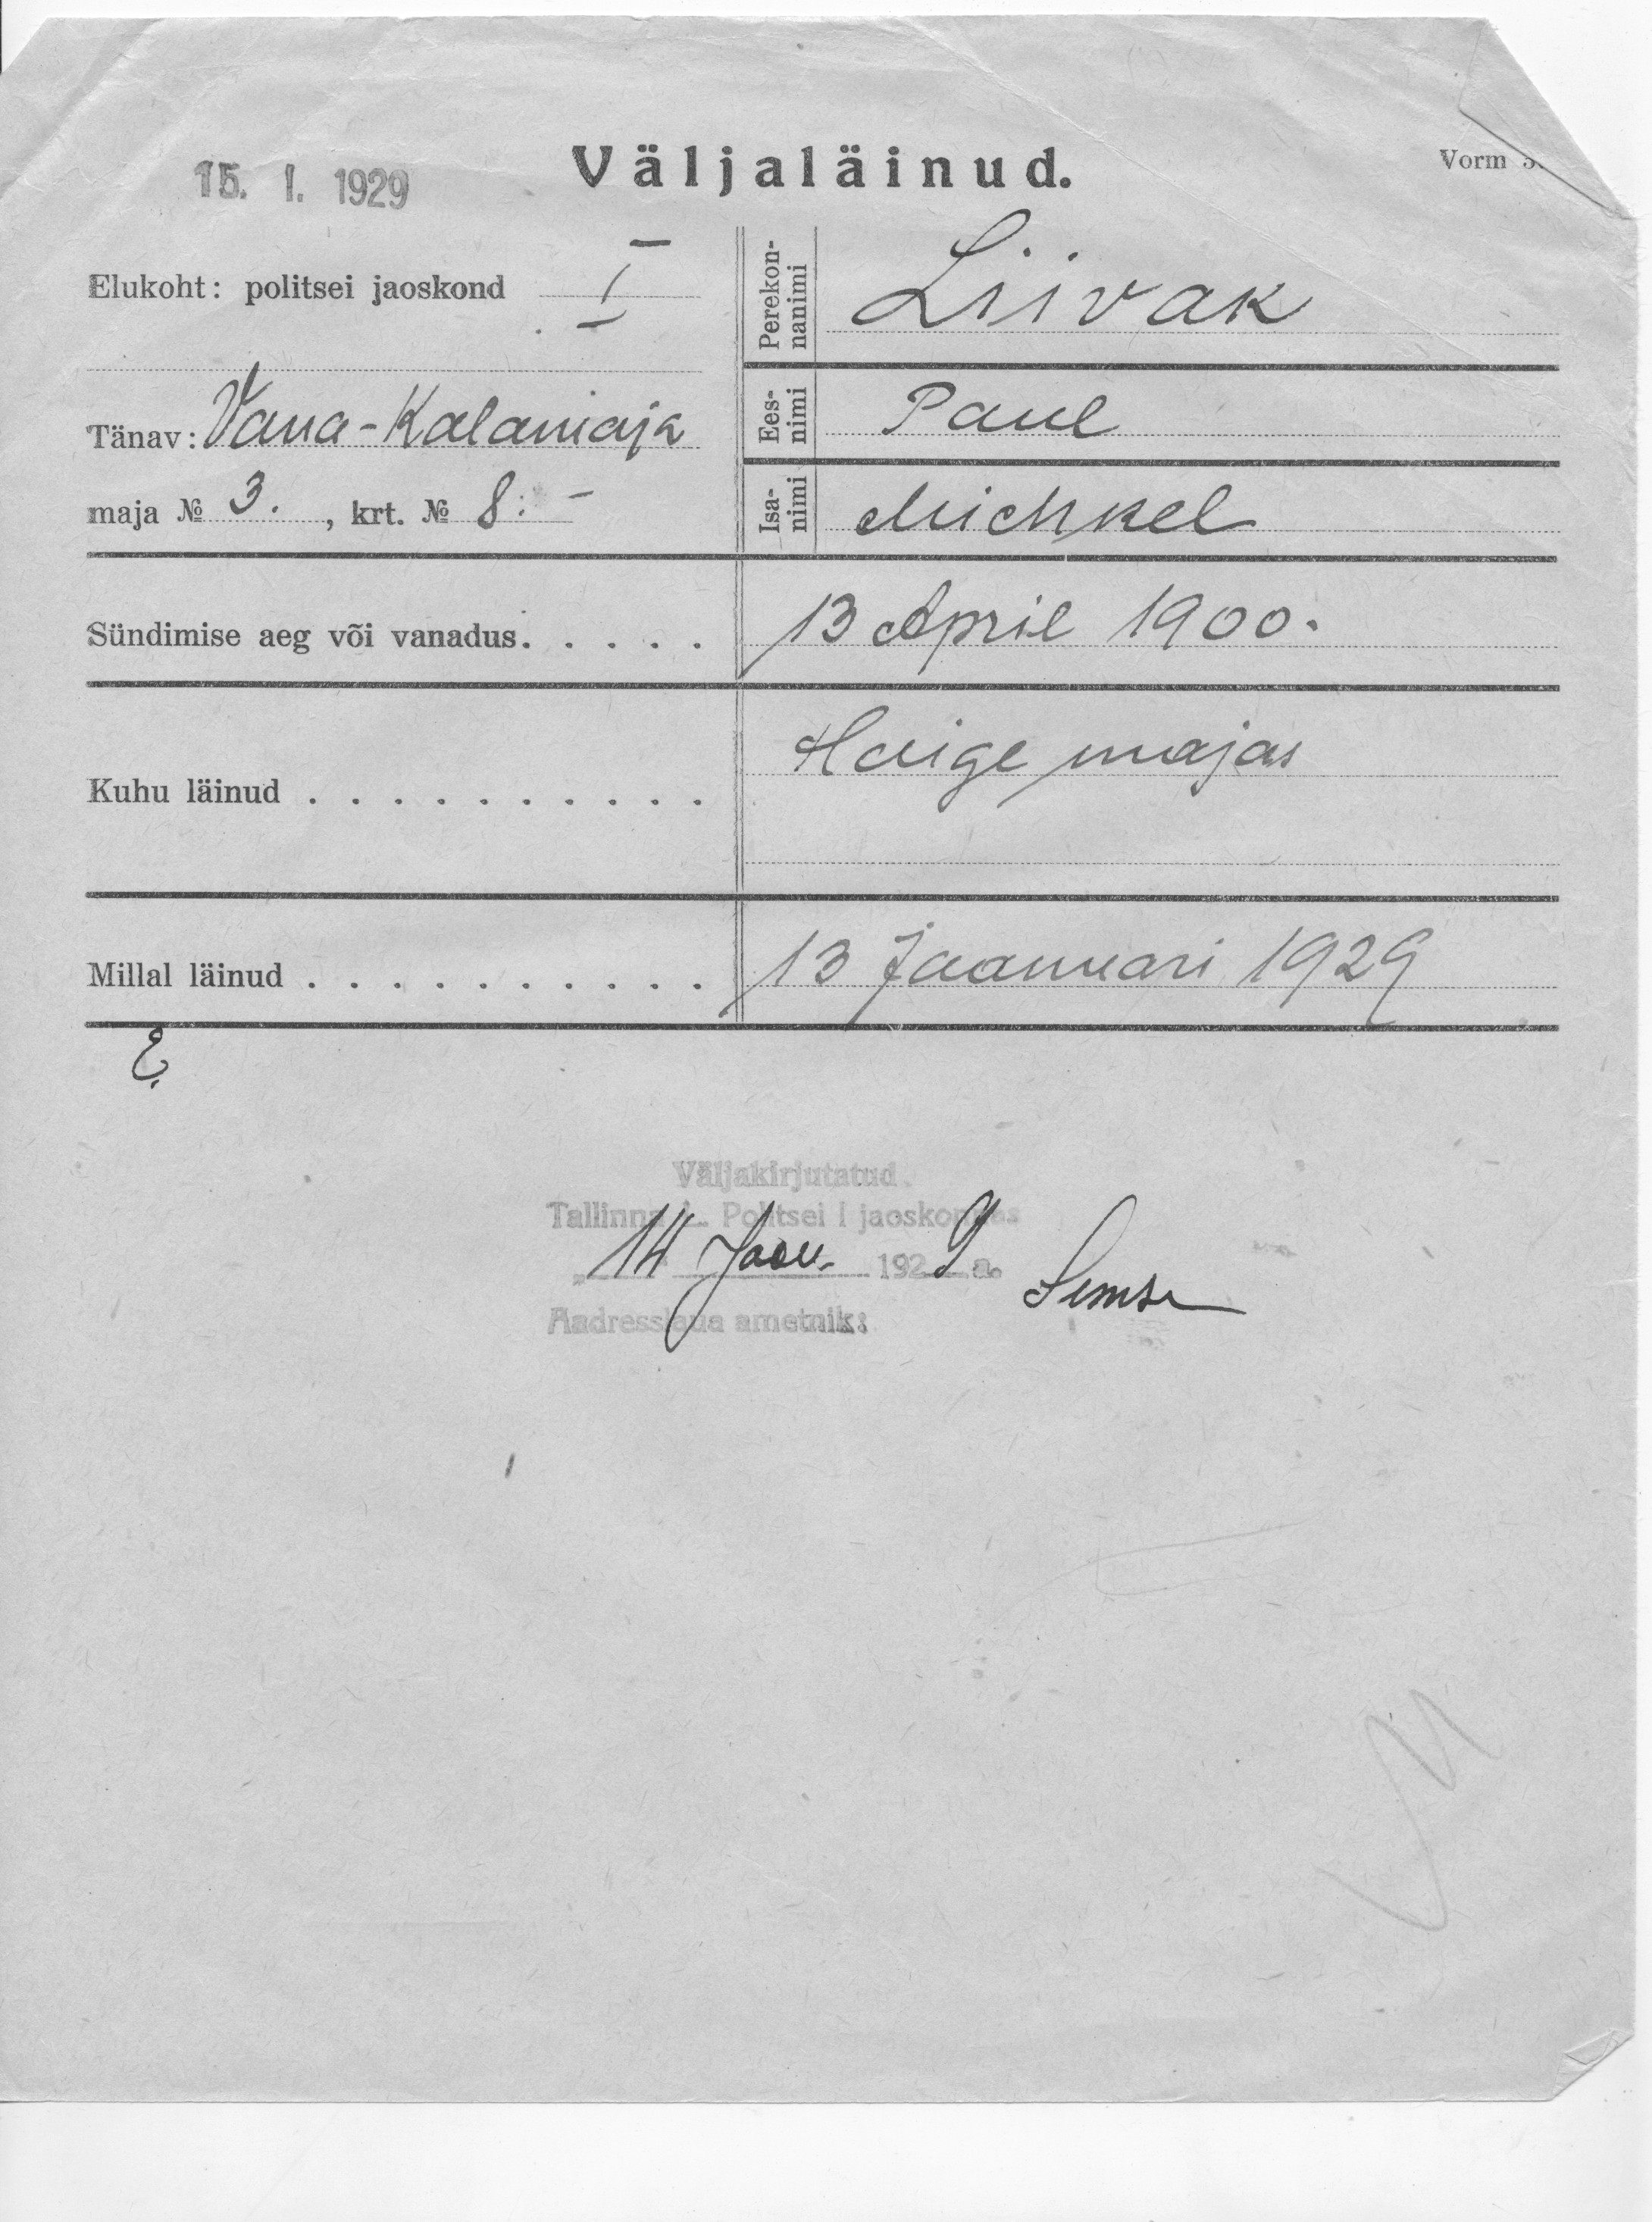 15. I. 1929
Väljaläinud.
Vorm
Elukoht: politsei jaoskond I
Tänav: Vana-Kalamaja
maja № 3. , krt. № 8:-
Perekon-
nanimi
Liivak
Ees-
nimi
Paul
Isa-
nimi
Michkel
Sündimise aeg või vanadus. . . . . 13 April 1900.
Kuhu läinud . . . . . . . . . . Haige majas
Millal läinud . . . . . . . . . . 13 Jaanuari 1929
Väljakirjutatud.
Tallinna L. Politsei I jaoskonnas
„ 14 Jaan. 1929 a.
Aadresslaua ametnik: